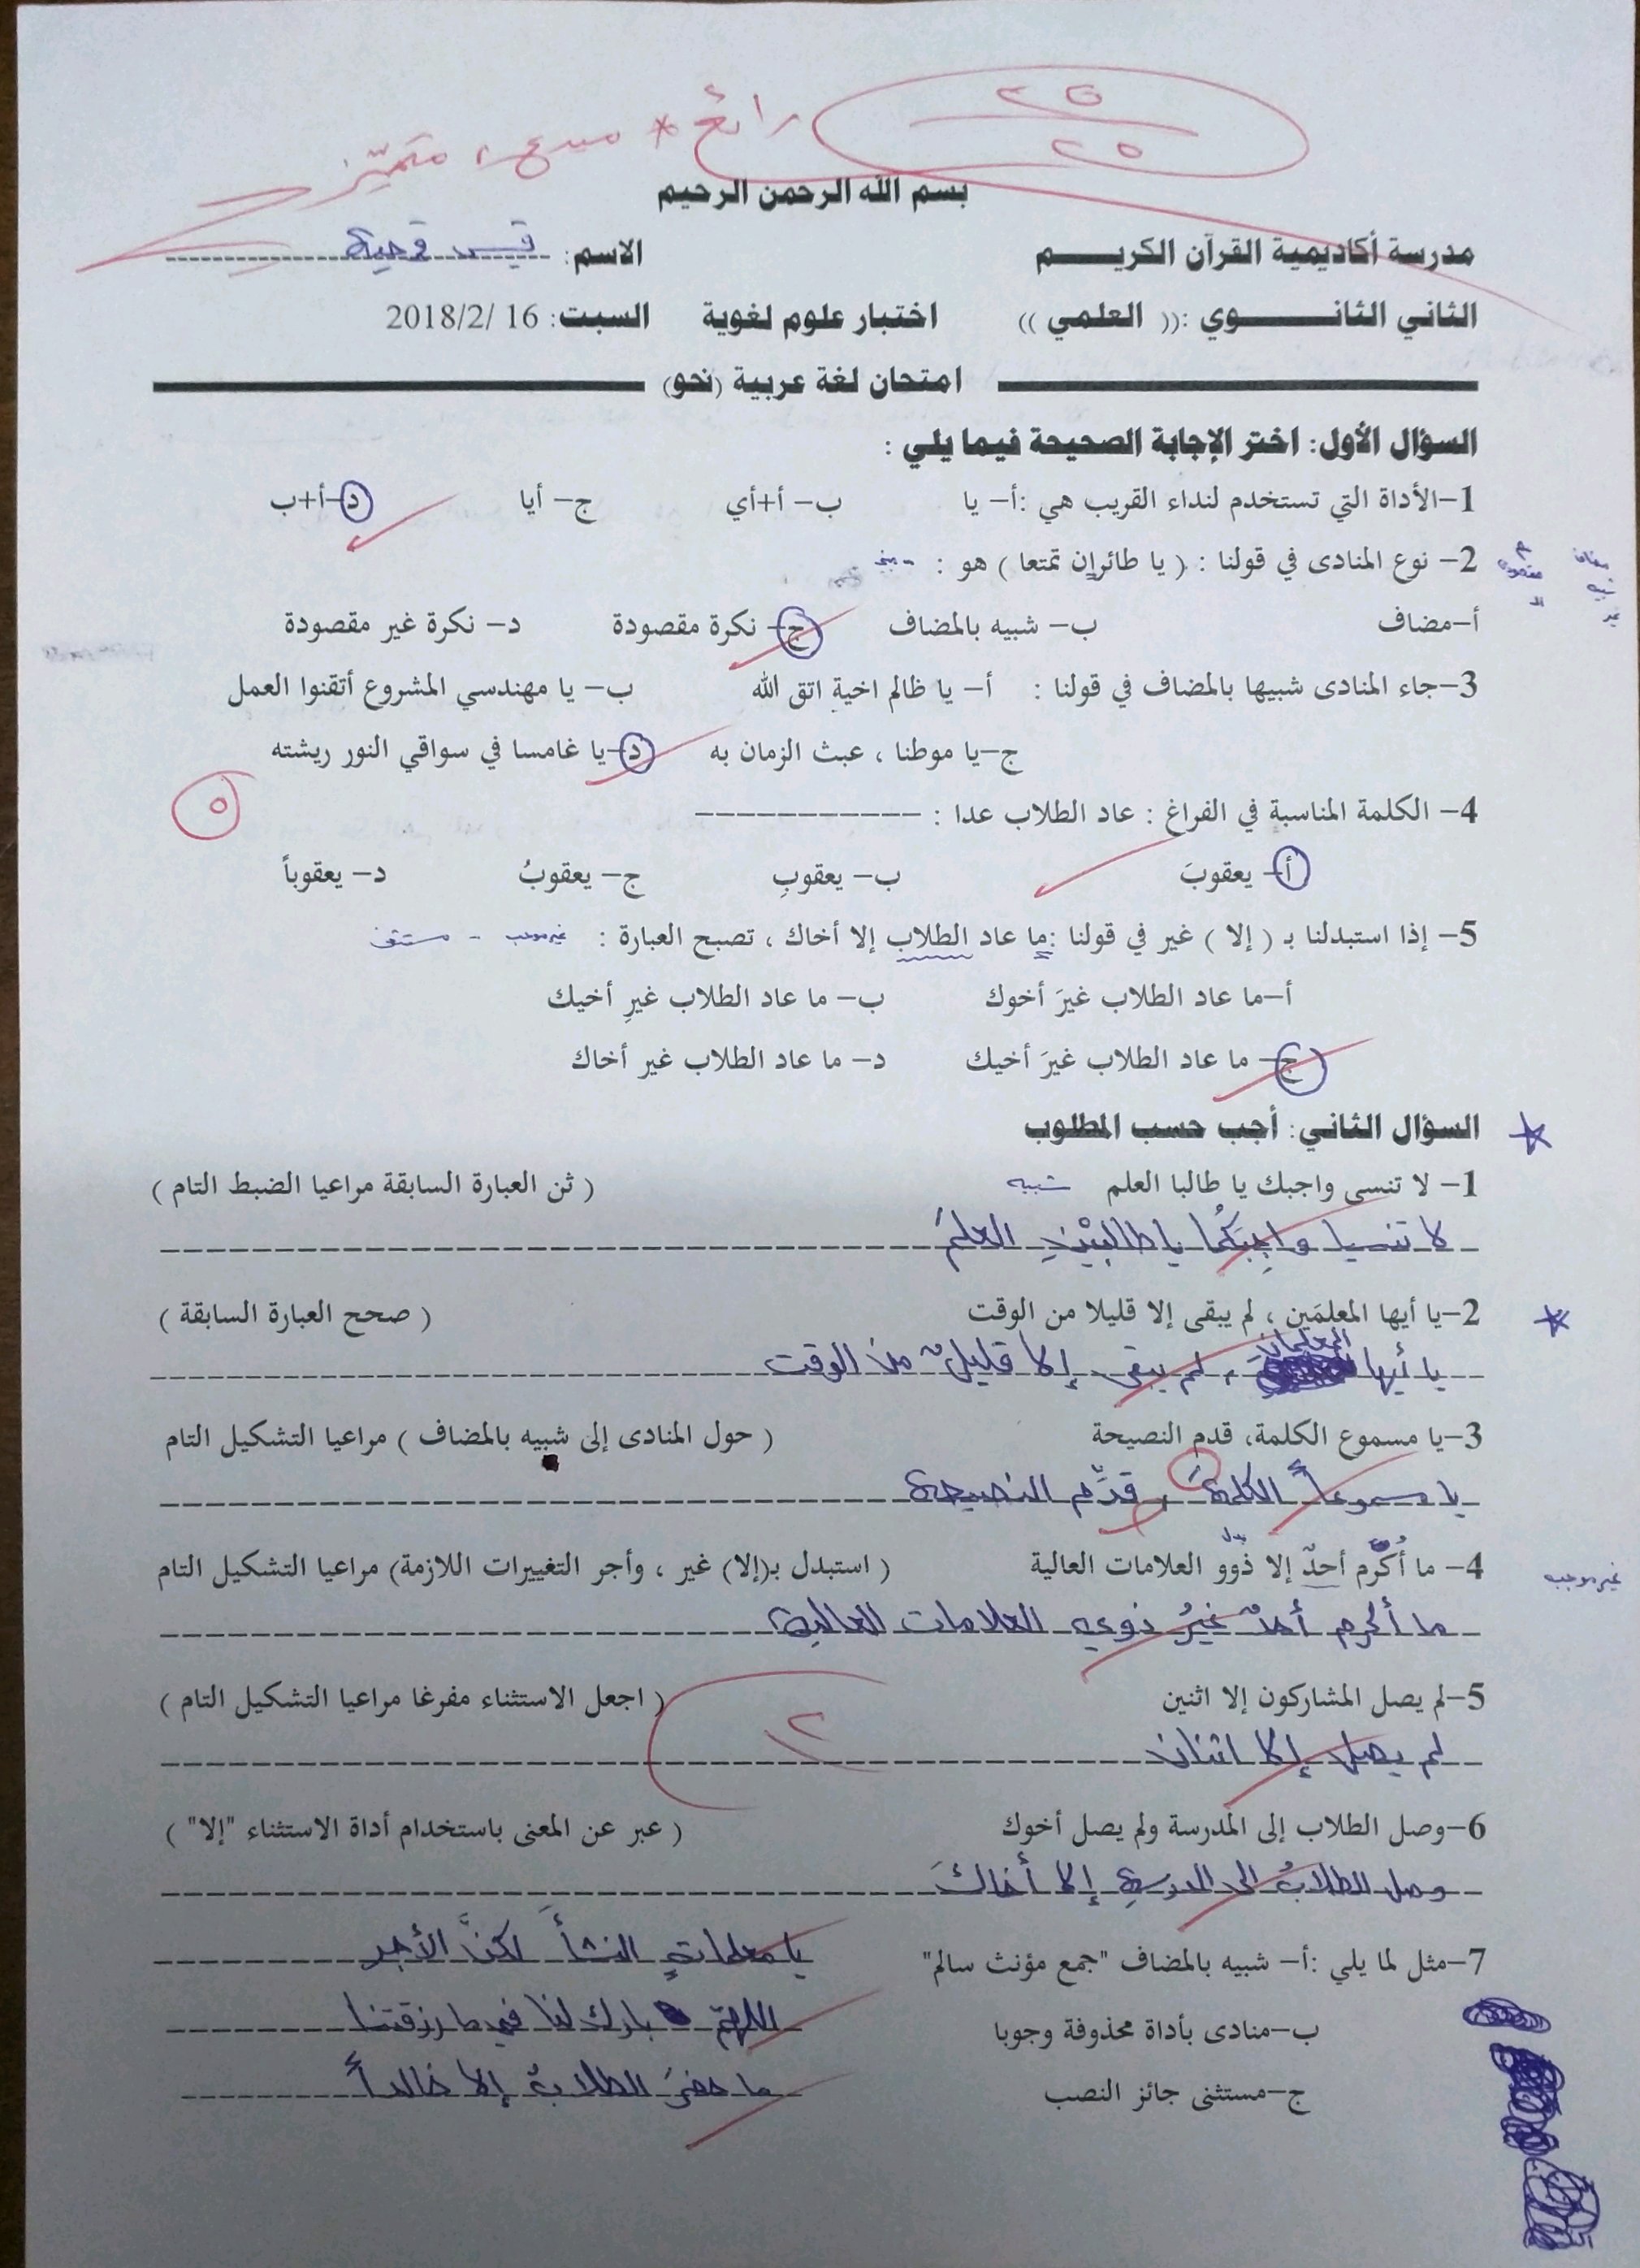 ٢٥
٢٥
رائع * مبدع، متميّز
بسم الله الرحمن الرحيم
مدرسة أكاديمية القرآن الكريم الاسم: قيس
الثاني الثانوي :(( العلمي )) اختبار علوم لغوية السبت: 16 /2018/2
امتحان لغة عربية (نحو)
السؤال الأول: اختر الإجابة الصحيحة فيما يلي :
1-الأداة التي تستخدم لنداء القريب هي :أ- يا ب- أ+أي ج- أيا د-أ+ب
2- نوع المنادى في قولنا : ( يا طائران تمتعا ) هو :
أ-مضاف ب- شبيه بالمضاف ج- نكرة مقصودة د- نكرة غير مقصودة
3-جاء المنادى شبيها بالمضاف في قولنا : أ- يا ظالم اخية اتق الله ب- يا مهندسي المشروع أتقنوا العمل
ج-يا موطنا ، عبث الزمان به د-يا غامسا في سواقي النور ريشته
٥
4- الكلمة المناسبة في الفراغ : عاد الطلاب عدا : -----------
أ- يعقوبَ ب- يعقوبِ ج- يعقوبُ د- يعقوباً
5- إذا استبدلنا بـ ( إلا ) غير في قولنا :ما عاد الطلاب إلا أخاك ، تصبح العبارة : غير موجب - مستثنى
أ-ما عاد الطلاب غيرَ أخوك ب- ما عاد الطلاب غيرِ أخيك
ج- ما عاد الطلاب غيرَ أخيك د- ما عاد الطلاب غير أخاك
السؤال الثاني: أجب حسب المطلوب
1- لا تنسى واجبك يا طالبا العلم شبيه ( ثن العبارة السابقة مراعيا الضبط التام )
لا تنسيا واجبَكُما يا طالبَيْنِ العلمَ
2-يا أيها المعلمَين ، لم يبقى إلا قليلا من الوقت ( صحح العبارة السابقة )
يا أيها المعلمان ، لم يبقَ إلا قليلٌ من الوقت
3-يا مسموع الكلمة، قدم النصيحة ( حول المنادى إلى شبيه بالمضاف ) مراعيا التشكيل التام
يا مسموعاً الكلمة ، قدّم النصيحة
4- ما أُكرم أحدٌ إلا ذوو العلامات العالية بدل ( استبدل بـ(إلا) غير ، وأجر التغييرات اللازمة) مراعيا التشكيل التام غير موجب
ما أكرم أحدٌ غيرُ ذوي العلامات العالية
5-لم يصل المشاركون إلا اثنين ( اجعل الاستثناء مفرغا مراعيا التشكيل التام )
٢
لم يصل إلا اثنان
6-وصل الطلاب إلى المدرسة ولم يصل أخوك ( عبر عن المعنى باستخدام أداة الاستثناء "إلا" )
وصل الطلابُ إلى المدرسةِ إلا أخاكَ
7-مثل لما يلي :أ- شبيه بالمضاف "جمع مؤنث سالم" يا معلماتٍ النشأَ لكنَّ الأجر
ب-منادى بأداة محذوفة وجوبا اللهمّ بارك لنا في ما رزقتنا
ج-مستثنى جائز النصب ما حضرَ الطلابُ إلا خالداً